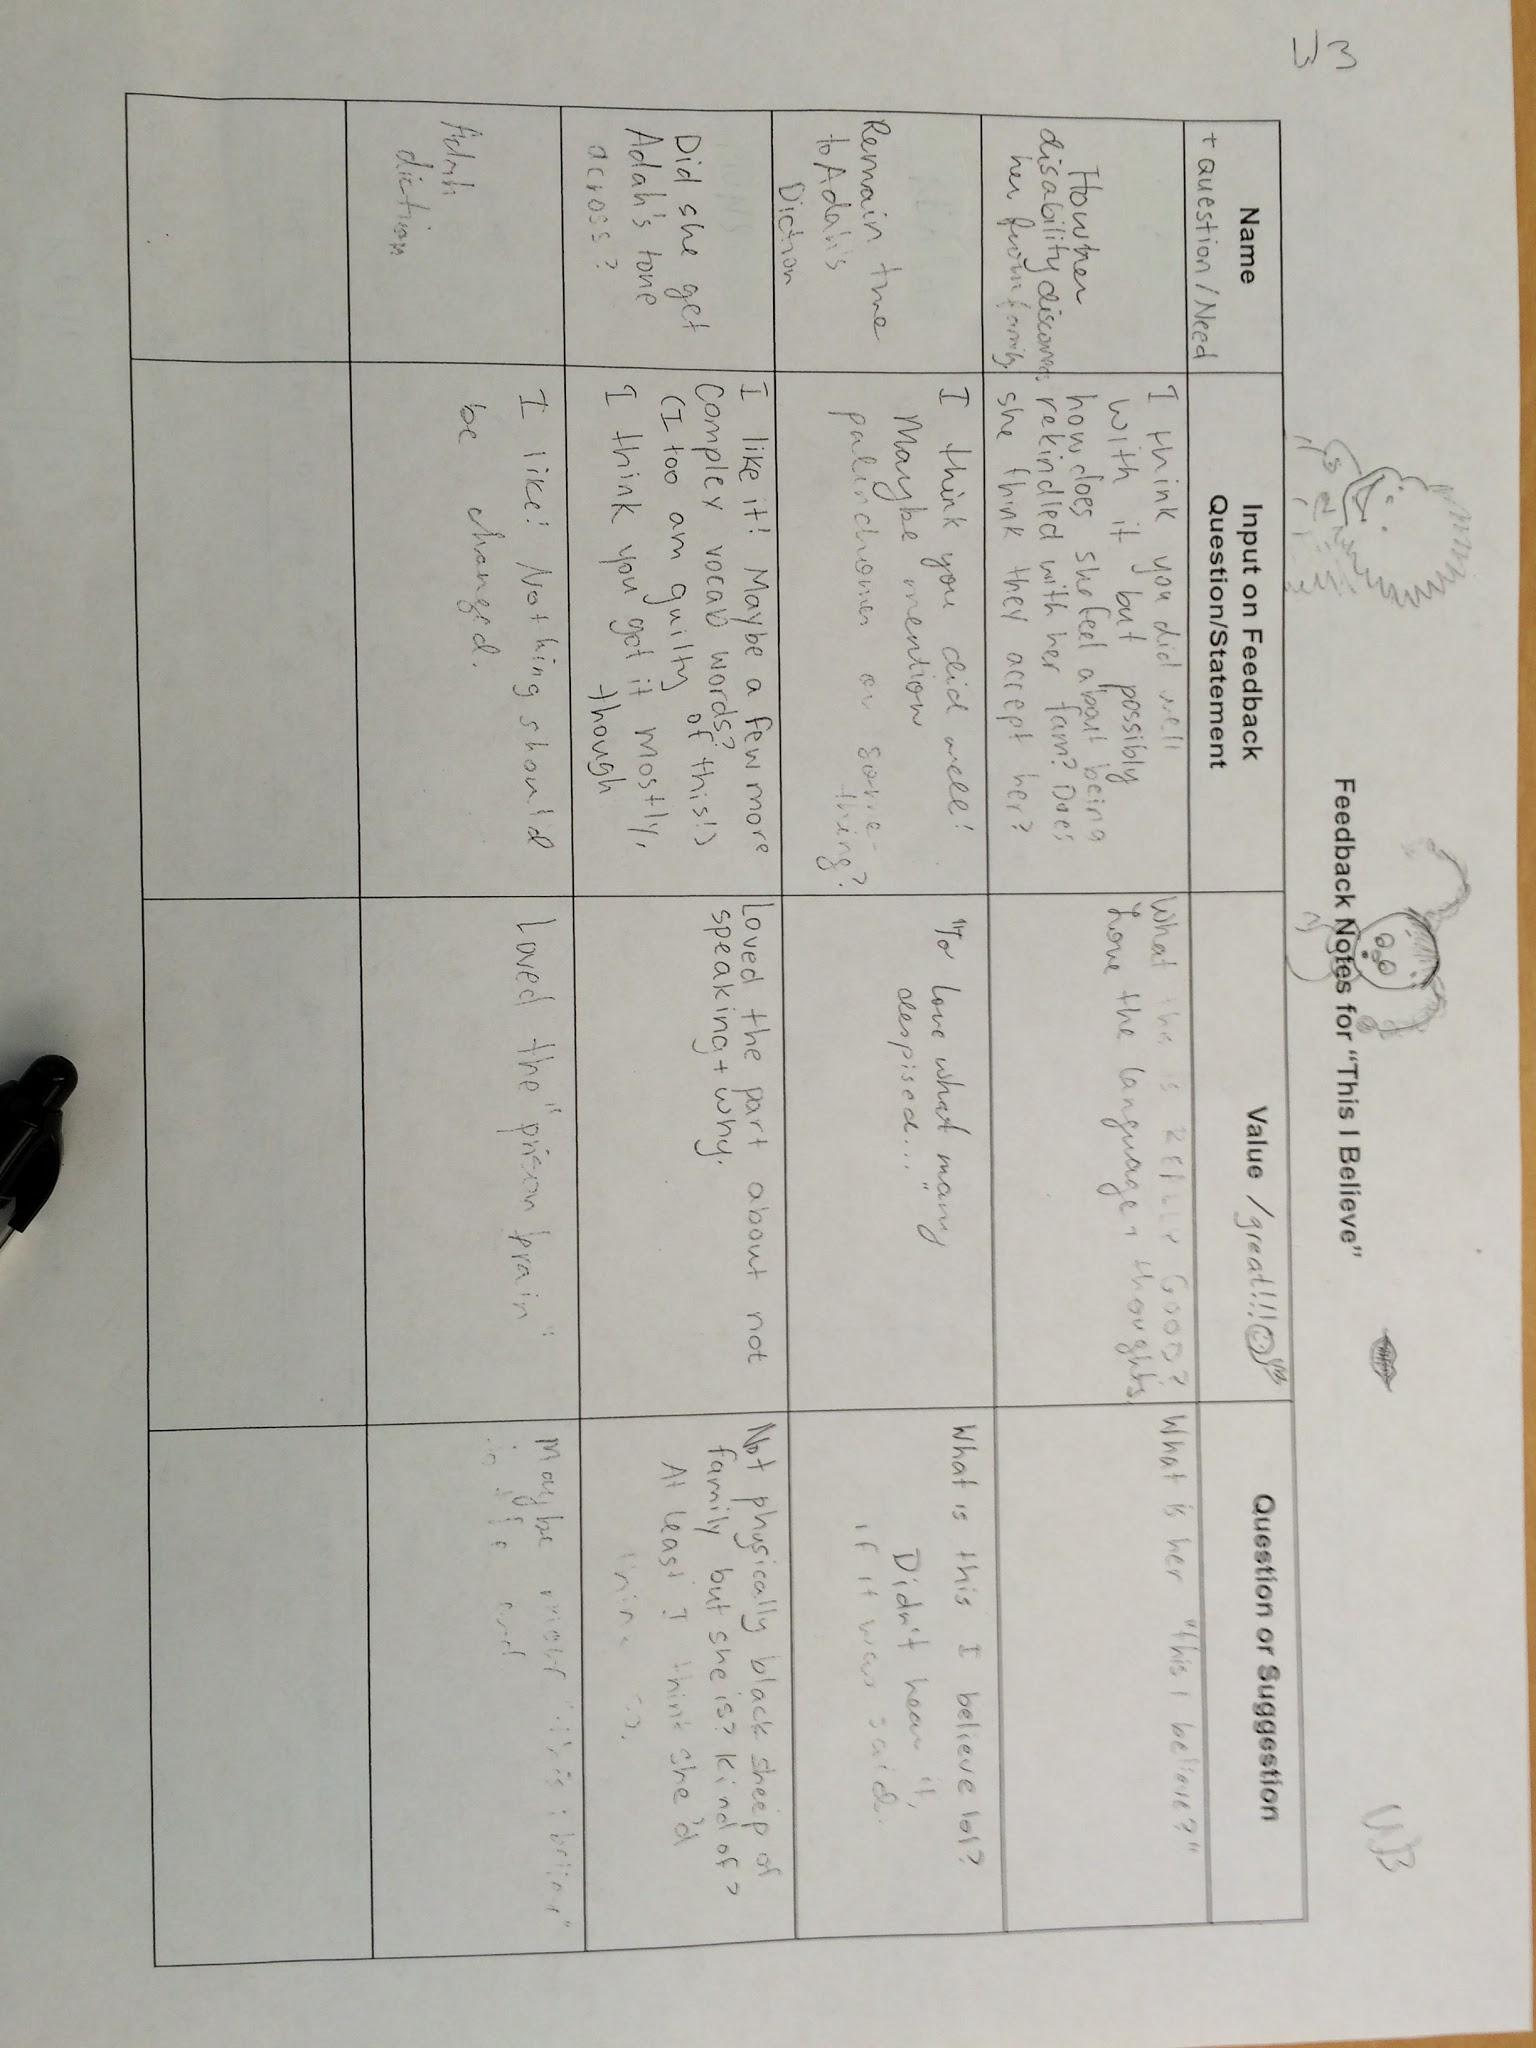 Feedback Notes for "This I Believe"
Name
+ question/Need
Input on Feedback
Question/Statement
Value / great!!!
Question or Suggestion
How her
disability
her from family
I think you did well
with it but possibly
how does she feel about being
rekindled with her fam? Does
she think they accept her?
Love the language + thoughts
What is her "this I believe?"
Remain true
to Adah's
Diction
I think you did well!
Maybe mention
palindromes or some-
thing?
"To love what many
despised..."
What is this I believe lol?
Didn't hear it,
if it was said.
Did she get
Adah's tone
across?
I like it! Maybe a few more
complex vocab words?
(I too am guilty
of this!)
I think you got it mostly,
though
Loved the part about not
speaking + why.
Not physically black sheep of
family but she is? Kind of?
At least I think she'd
Adah
diction
I like! Nothing should
be changed.
Loved the "prison brain"
Maybe more "this I believe"